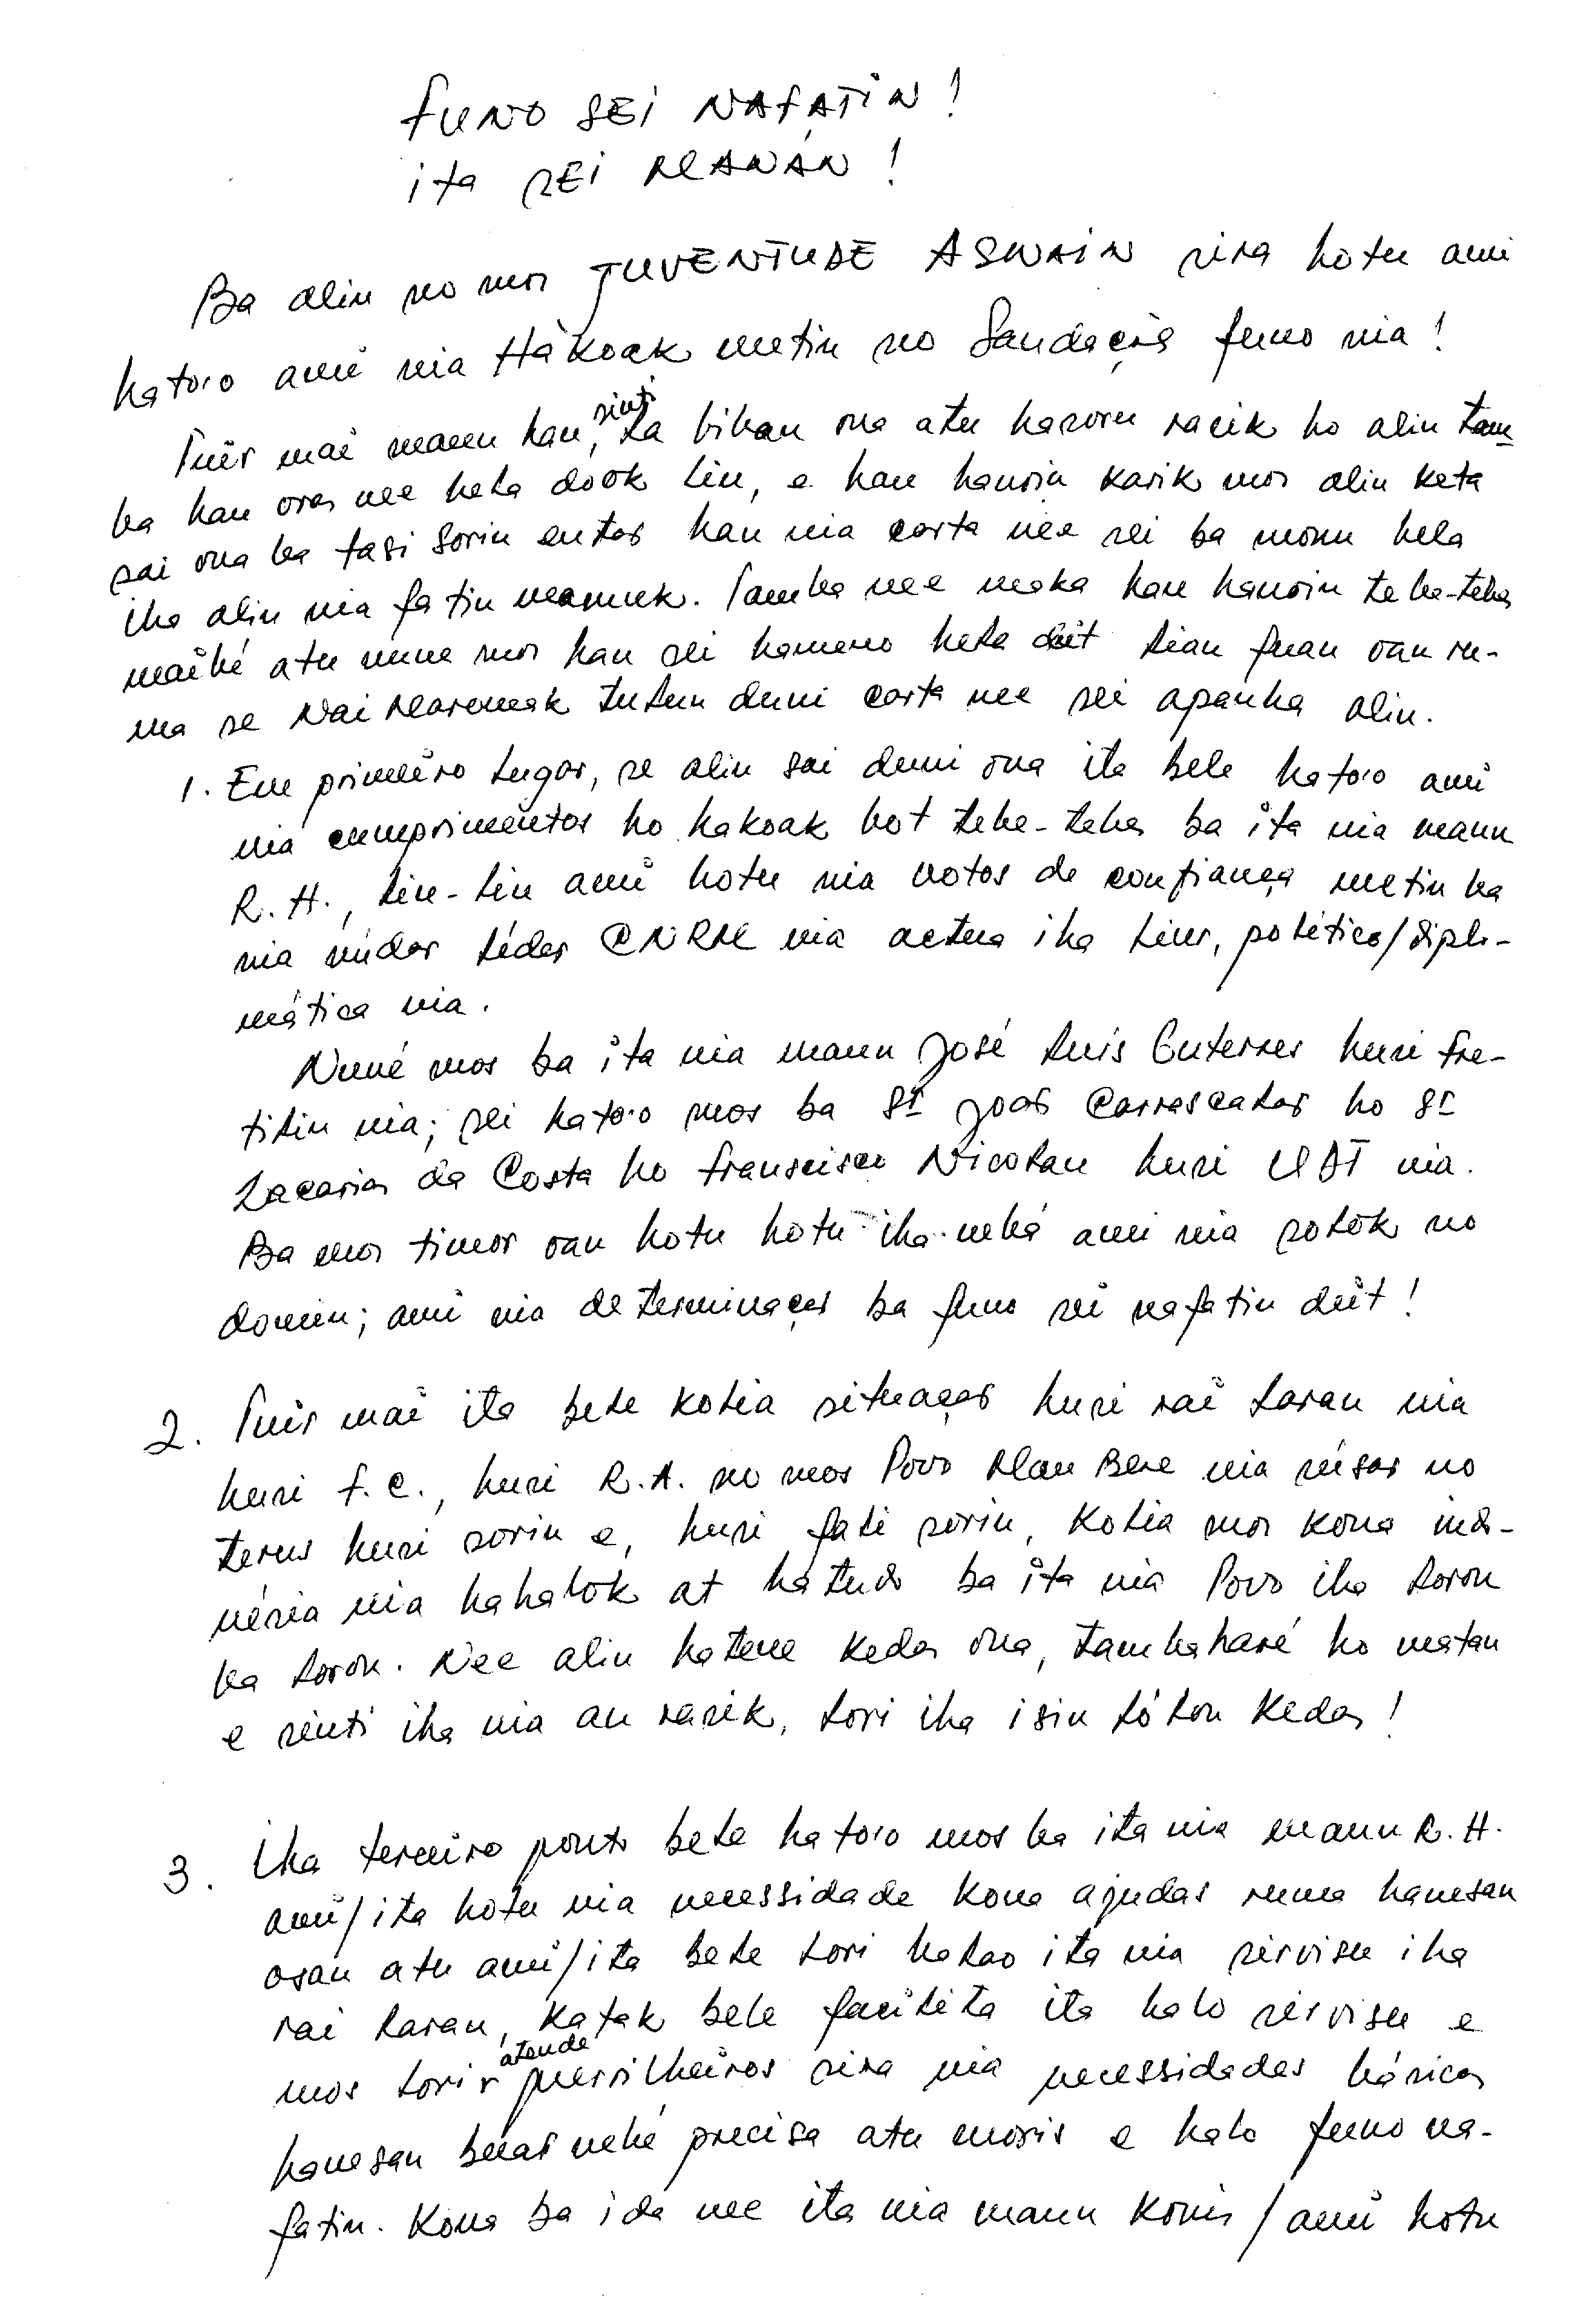 FUNO SEI NAFATIN!
ita SEI MANÁN!
Ba alin no mos JUVENTUDE ASWAIN sira hotu ami
hato'o ami nia Hákoak metin no Saudação funo nia!
Tuir mai maun hau, sinti la biban ona atu hasoru rasik ho alin tam
ba hau oras nee hela dook liu, e hau hanoin karik mos alin keta
sai ona ba tasi sorin entos hau nia carta nee sei ba monu hela
iha alin nia fatin mamuk. Tamba nee maka hau hanoin teba-tebas
maibé atu nune mos hau sei hameno hela deit lian fuan oan ru-
ma se Nai Maromak tulun duni carta nee sei apanha alin.
1. Em primeiro lugar, se alin sai duni ona ita bele hato'o ami
nia cumprimentos ho hakoak bot teba-tebas ba ita nia maun
R.H., liu-liu ami hotu nia votos de confiança metin ba
nia núdar líder CNRM nia actua iha liur, político/diplo-
mática nia.
Nuné mos ba ita nia maun José Luís Guterres husi Fre-
tilin nia; sei hato'o mos ba Sr João Carrascalão ho Sr
Zacarias da Costa ho Franscisco Nicolau husi UDT nia.
Ba mos timor oan hotu hotu iha nebá ami nia solok no
domin; ami nia determinação ba funo sei nafatin deit!
2. Tuir mai ita bele kolia situação husi rai laran nia
husi F.C., husi R.A. no mos Povo Mau Bere nia susar no
terus husi sorin e, husi fali sorin, kolia mos kona indo-
nésia nia hahalok at hatudo ba ita nia Povo iha loron
ba loron. Nee alin hatene kedas ona, tamba haré ho matan
e sinti iha nia an rasik, lori iha isin lólon kedas!
3. Iha terceiro ponto bele hato'o mos ba ita nia maun R.H.
ami/ita hotu nia necessidade kona ajudas ruma hanesan
osan atu ami/ita bele lori halao ita nia servisu iha
rai laran, katak bele facilita ita halo servisu e
mos lori atende guerrilheiros sira nia necessidades básicas
hanesan buat nebé precisa atu moris e halo funo na-
fatin. Kona ba ida nee ita nia maun Konis/ami hotu